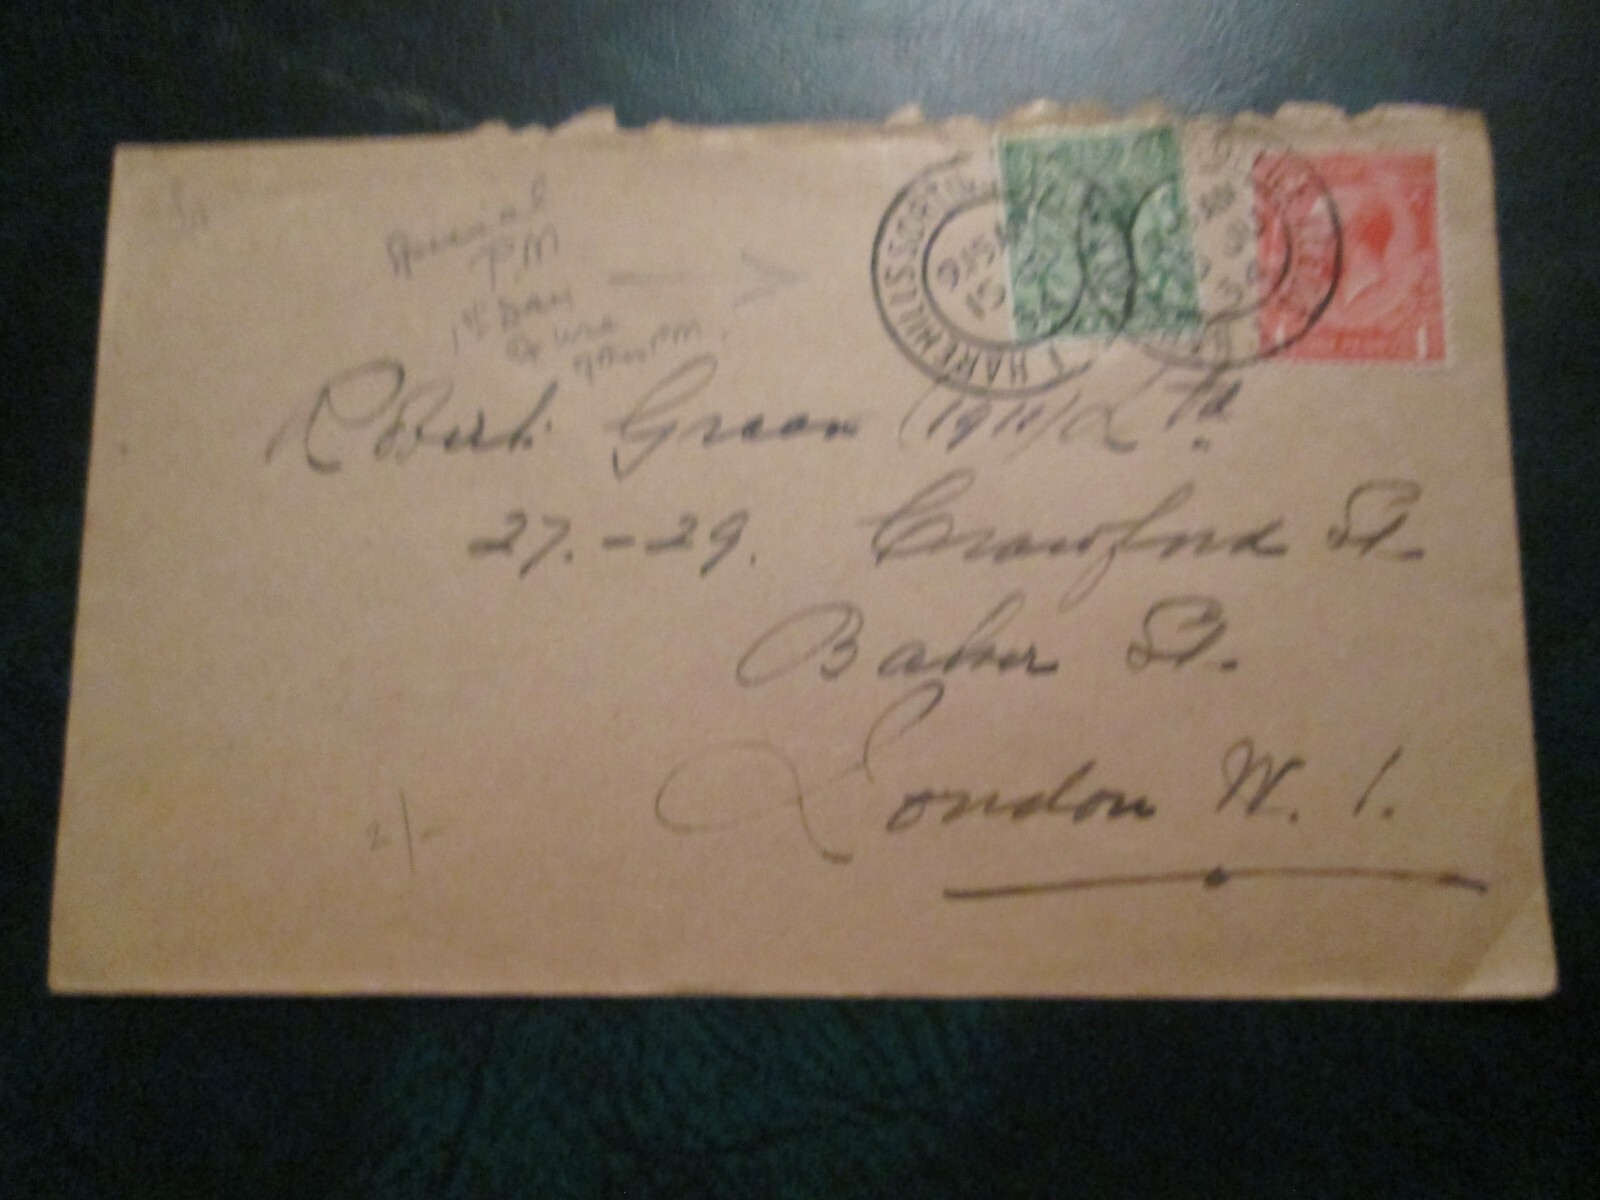 Special
P.M
1st DAY
of use
P.M.
HAREHILLS S.O
1
1
Robert Green (1911) Ltd
27. - 29. Crawford St.
Baker St.
London W. 1.
2/-